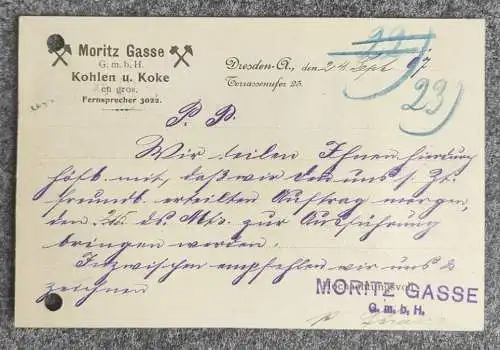 Moritz Gasse
G. m. b. H.
Kohlen u. Koke
en gros.
Fernsprecher 3022.
Dresden-A., den 24 Sept 07
Terrassenufer 25.
22)
23)
P. P.
Wir teilen Ihnen hierdurch
höfl. mit, daß wir den uns s. Zt.
freundl. erteilten Auftrag morgen,
den 25. ds. Mts. zur Ausführung
bringen werden.
Inzwischen empfehlen wir uns &
zeichnen
Hochachtungsvoll
MORITZ GASSE
G. m. b. H.